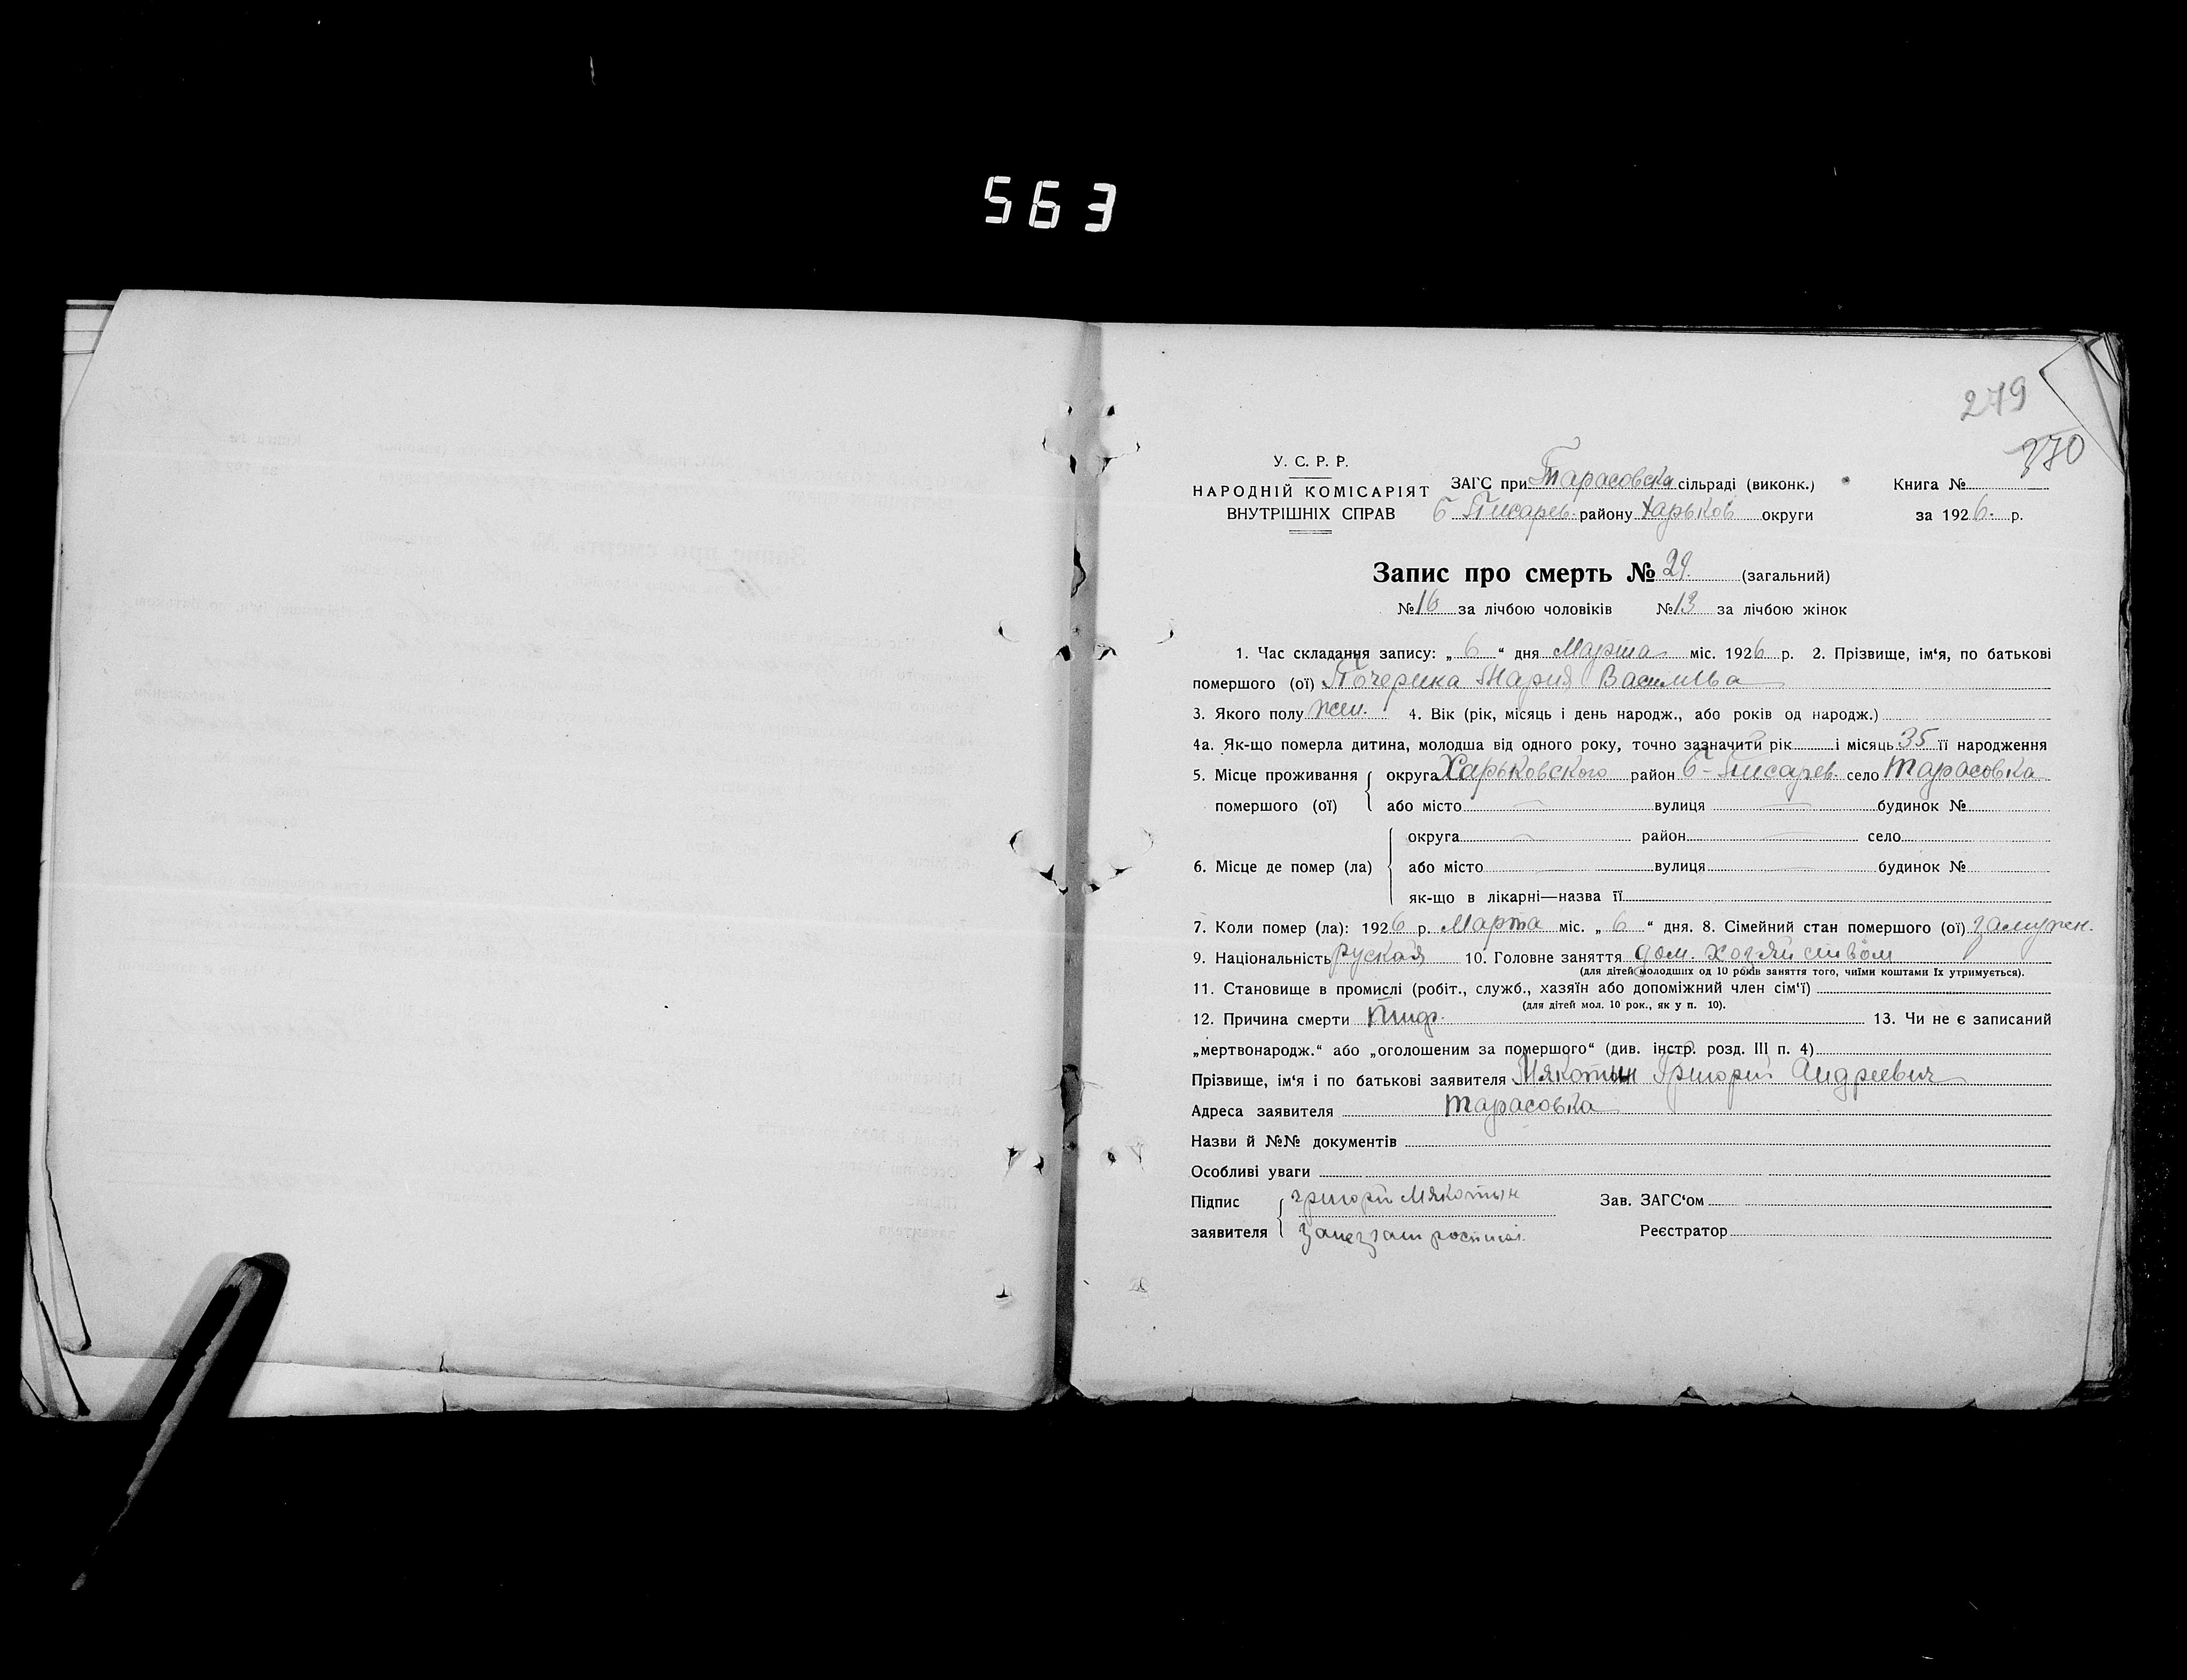 563
279
370
У. С. Р. Р.
НАРОДНІЙ КОМІСАРІЯТ
ВНУТРІШНІХ СПРАВ
ЗАГС при Тарасовска сільраді (виконк.)
Б Писарев. району Харьков округи
Книга №
за 1926. р.
Запис про смерть № 29. (загальний)
№ 16 за лічбою чоловіків № 13 за лічбою жінок
1. Час складання запису: „ 6 “ дня Марта міс. 1926 р. 2. Прізвище, ім‘я, по батькові
помершого (ої) Мария
3. Якого полу жен. 4. Вік (рік, місяць і день народж., або років од народж.)
4а. Як-що померла дитина, молодша від одного року, точно зазначити рік і місяць 35 її народження
5. Місце проживання округа Харьковского район Б-Писарев. село Тарасовка
помершого (ої) або місто — вулиця — будинок №
округа — район — село
6. Місце де помер (ла) або місто — вулиця — будинок №
як-що в лікарні—назва її
7. Коли помер (ла): 1926 р. Марта міс. „ 6 “ дня. 8. Сімейний стан помершого (ої) замужн.
9. Національність руская 10. Головне заняття дом. хозяйством
(для дітей молодших од 10 років заняття того, чиїми коштами їх утримується).
11. Становище в промислі (робіт., служб., хазяїн або допоміжний член сім‘ї)
(для дітей мол. 10 рок., як у п. 10).
12. Причина смерти тиф. 13. Чи не є записаний
„мертвонародж.“ або „оголошеним за помершого“ (див. інстр. розд. III п. 4)
Прізвище, ім‘я і по батькові заявителя Мякотин Григорий Андреевич
Адреса заявителя Тарасовка
Назви й №№ документів
Особливі уваги
Підпис григорй Мякотын
заявителя
Зав. ЗАГС‘ом
Реєстратор